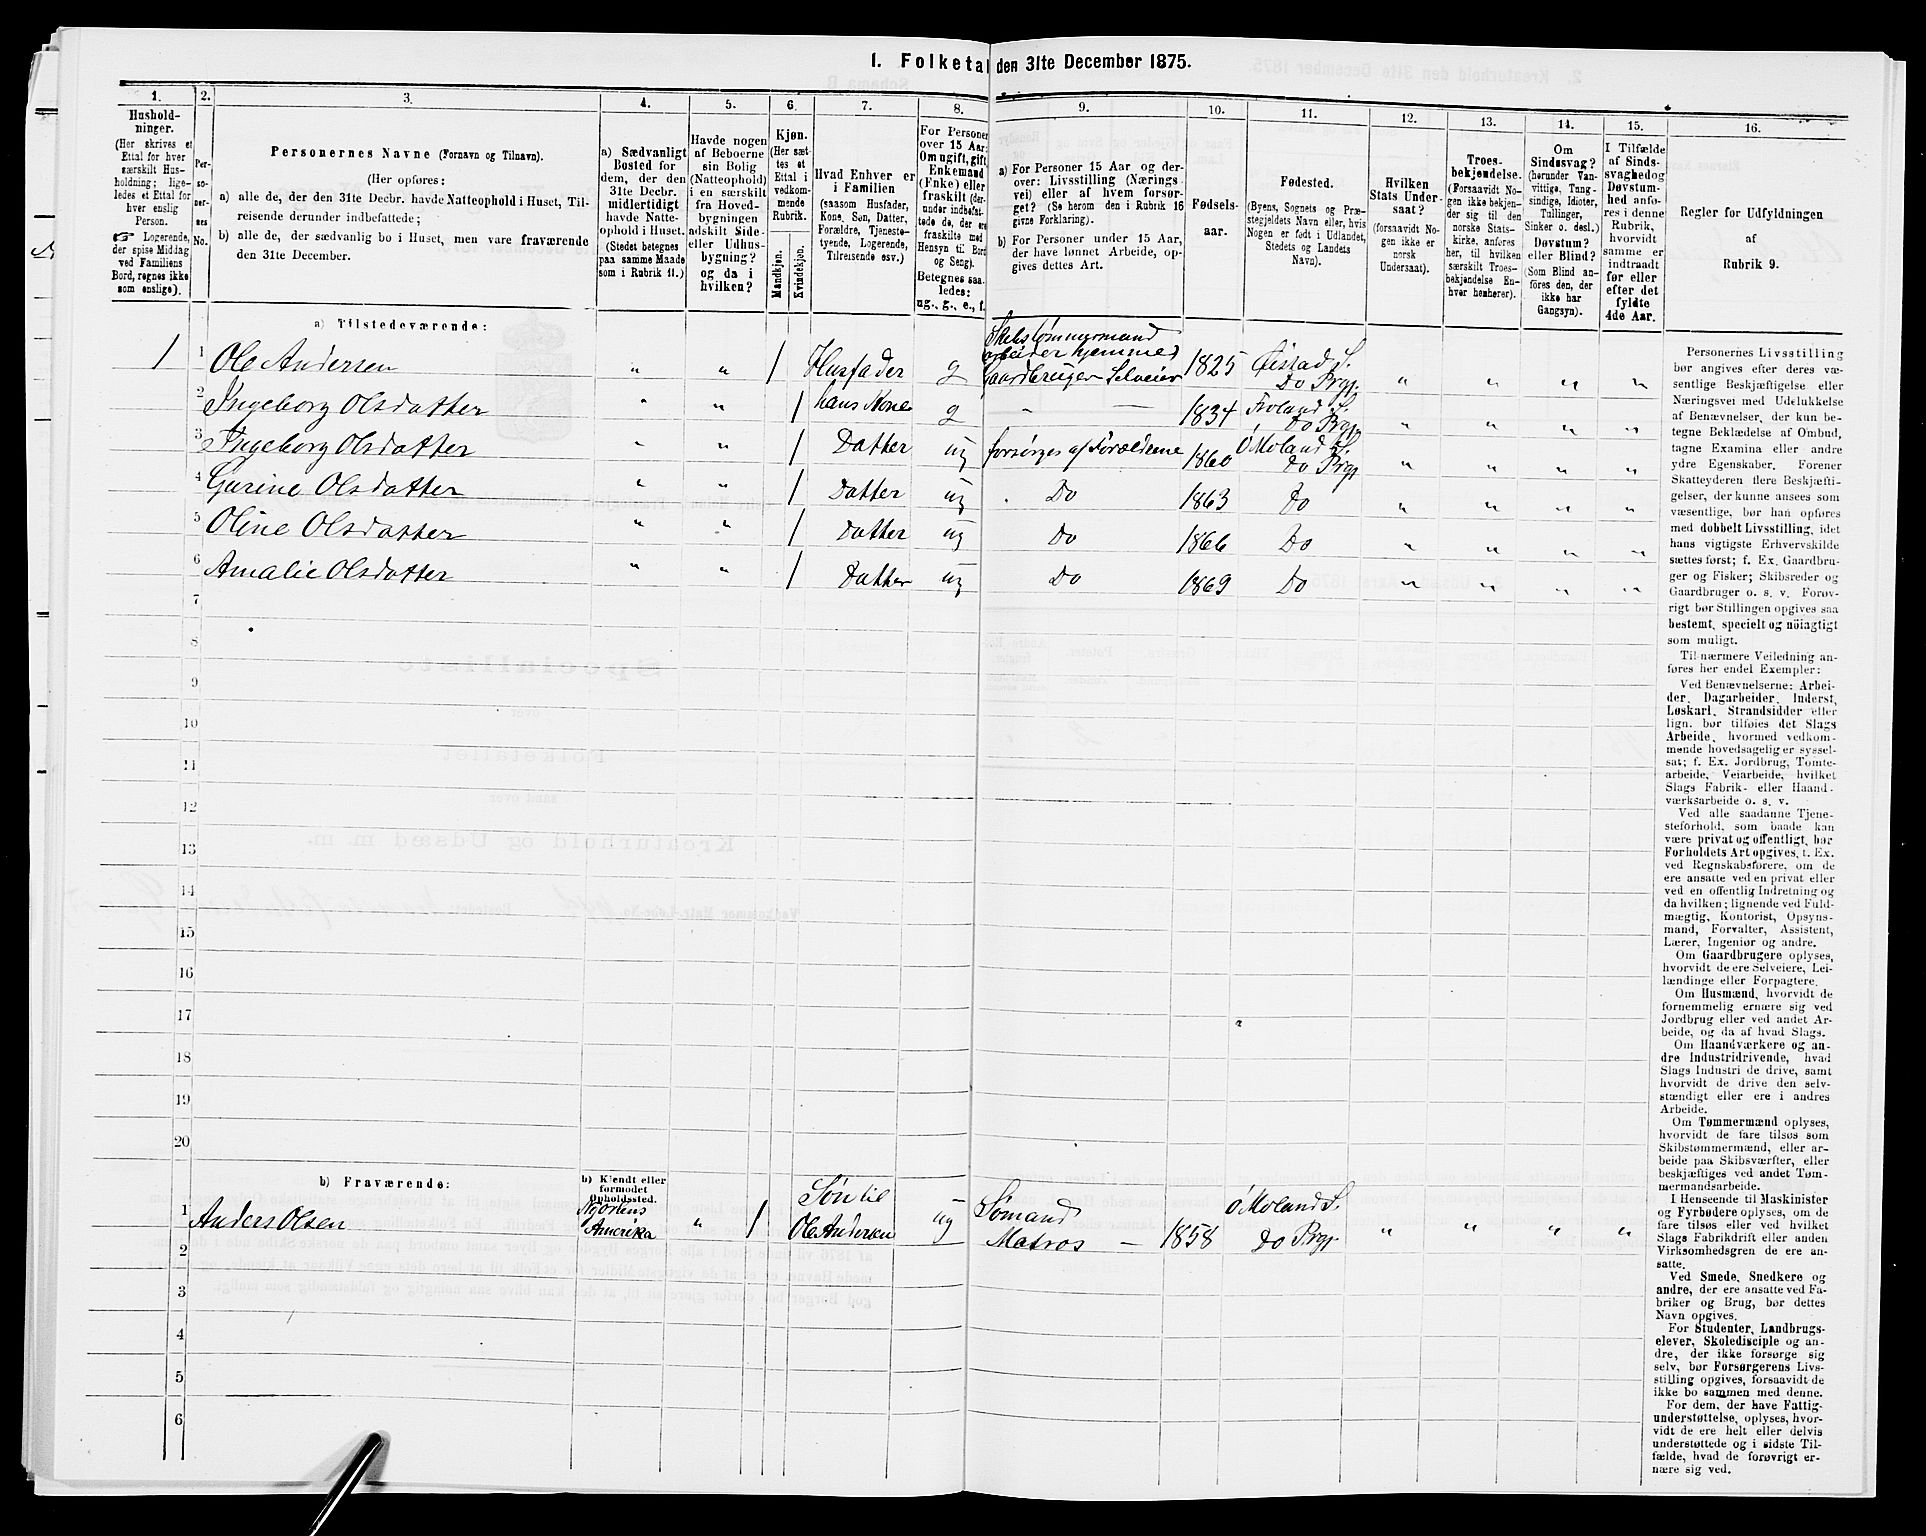 1. Folketal den 31te December 1875.
1. 2. 3. 4. 5. 6. 7. 8. 9. 10. 11. 12. 13. 14. 15. 16.
Hushold-
ninger.
(Her skrives et
Ettal for hver
særskilt Hus-
holdning; lige-
ledes et Ettal for
hver enslig
Person.
☞ Logerende,
der spise Middag
ved Familiens
Bord, regnes ikke
som enslige).
Per-
so-
ner-
nes
No.
Personernes Navne (Fornavn og Tilnavn).
(Her opføres:
a) alle de, der den 31te Decbr. havde Natteophold i Huset, Til-
reisende derunder indbefattede;
b) alle de, der sædvanlig bo i Huset, men vare fraværende
den 31te December.
a) Sædvanligt
Bosted for
dem, der den
31te Decbr.
midlertidigt
havde Natte-
ophold i Huset.
(Stedet betegnes
paa samme Maade
som i Rubrik 11.)
Havde nogen
af Beboerne
sin Bolig
(Natteophold)
i en særskilt
fra Hoved-
bygningen
adskilt Side-
eller Udhus-
bygning?
og da i
hvilken?
Kjøn.
(Her sæt-
tes et
Ettal i
vedkom-
mende
Rubrik.
Mandkjøn.
Kvindekjøn.
Hvad Enhver er
i Familien
(saasom Husfader,
Kone, Søn, Datter,
Forældre, Tjeneste-
tyende, Logerende,
Tilreisende osv.)
For Personer
over 15 Aar:
Om ugift, gift,
Enkemand
(Enke) eller
fraskilt (der-
under indbefat-
tede de, der ere
fraskilte med
Hensyn til Bord
og Seng).
Betegnes saa-
ledes:
ug., g., e., f.
a) For Personer 15 Aar og der-
over: Livsstilling (Nærings-
vei) eller af hvem forsør-
get? (Se herom den i Rubrik 16
givne Forklaring).
b) For Personer under 15 Aar,
der have lønnet Arbeide, op-
gives dettes Art.
Fødsels-
aar.
Fødested.
(Byens, Sognets og Præ-
stegjeldets Navn eller, hvis
Nogen er født i Udlandet,
Stedets og Landets
Navn).
Hvilken
Stats Under-
saat?
(forsaavidt No-
gen ikke er
norsk
Undersaat).
Troes-
bekjendelse.
(Forsaavidt No-
gen ikke bekjen-
der sig til den
norske Stats-
kirke, anføres
her, til hvilken
særskilt Troes-
bekjendelse En-
hver henhører).
Om
Sindssvag?
(herunder Van-
vittige, Tung-
sindige, Idioter,
Tullinger,
Sinker o. desl.)
Døvstum?
eller Blind?
(Som Blind an-
føres den, der
ikke har
Gangsyn).
I Tilfælde
af Sinds-
svaghed og
Døvstum-
hed anfø-
res i denne
Rubrik,
hvorvidt
samme er
indtraadt
før eller
efter det
fyldte
4de Aar.
Regler for Udfyldningen
af
Rubrik 9.
a) Tilstedeværende:
1 1 Ole Andersen " " 1 Husfader g Skibstømmermand
arbeider hjemme
Gaardbruger Selveier 1825 Øiestad S.
Do Prgj. " " " "
2 Ingeborg Olsdatter " " 1 hans Kone g " — 1834 Froland S.
Do Prgj. " " " "
3 Ingeborg Olsdatter " 1 Datter ug forsørges af Forældrene 1860 Ø Moland S.
Do Prgj " " " "
4 Gurine Olsdatter " " 1 Datter ug Do 1863 Do " " " "
5 Oline Olsdatter " " 1 Datter ug Do 1866 Do " " " "
6 Amalie Olsdatter " " 1 Datter ug Do 1869 Do " " " "
7
8
9
10
11
12
13
14
15
16
17
18
19
20
b) Fraværende:
b) Kjendt eller
formodet
Opholdssted.
1 Anders Olsen
Amerika " 1 Søn til
Ole Andersen ug Sømand
Matros — 1858 Ø Moland S.
Do Prgj. " " " "
2
3
4
5
6
Personernes Livsstilling
bør angives efter deres væ-
sentlige Beskjæftigelse eller
Næringsvei med Udelukkelse
af Benævnelser, der kun be-
tegne Beklædelse af Ombud,
tagne Examina eller andre
ydre Egenskaber. Forener
Skatteyderen flere Beskjæfti-
gelser, der kunne ansees som
væsentlige, bør han opføres
med dobbelt Livsstilling, idet
hans vigtigste Erhvervskilde
sættes først; f. Ex. Gaardbru-
ger og Fisker; Skibsreder og
Gaardbruger o. s. v. Forøv-
rigt bør Stillingen opgives saa
bestemt, specielt og nöiagtigt
som muligt.
Til nærmere Veiledning an-
føres her endel Exempler:
Ved Benævnelserne: Arbei-
der, Dagarbeider, Inderst,
Løskarl, Strandsidder eller
lign. bør tilføies det Slags
Arbeide, hvormed vedkom-
mende hovedsagelig er syssel-
sat; f. Ex. Jordbrug, Tomte-
arbeide, Veiarbeide, hvilket
Slags Fabrik- eller Haand-
værksarbeide o. s. v.
Ved alle saadanne Tjene-
steforhold, som baade kan
være privat og offentligt, bør
Forholdets Art opgives, f. Ex.
ved Regnskabsførere, om de
ere ansatte ved en privat eller
ved en offentlig Indretning og
da hvilken; lignende ved Fuld-
mægtig, Kontorist, Opsyns-
mand, Forvalter, Assistent,
Lærer, Ingeniør og andre.
Om Gaardbrugere oplyses,
hvorvidt de ere Selveiere, Lei-
lændinge eller Forpagtere.
Om Husmænd, hvorvidt de
fornemmelig ernære sig ved
Jordbrug eller ved andet Ar-
beide, og da af hvad Slags.
Om Haandværkere og an-
dre Industridrivende, hvad
Slags Industri de drive, samt
hvorvidt de drive den selv-
stændigt eller ere i andres
Arbeide.
Om Tømmermænd oplyses,
hvorvidt de fare tilsøs som
Skibstømmermænd, eller ar-
beide paa Skibsværfter, eller
beskjæftiges ved andet Tøm-
mermandsarbeide.
I Henseende til Maskinister
og Fyrbødere oplyses, om de
fare tilsøs eller ved hvilket
Slags Fabrikdrift eller anden
Virksomhedsgren de ere an-
satte.
Ved Smede, Snedkere og
andre, der ere ansatte ved Fa-
briker og Brug, bør dettes
Navn opgives.
For Studenter, Landbrugs-
elever, Skoledisciple og an-
dre, der ikke forsørge sig
selv, bør Forsørgerens Livs-
stilling opgives, forsaavidt de
ikke bo sammen med denne.
For dem, der have Fattig-
understøttelse, oplyses, hvor-
vidt de ere helt eller delvis
understøttede og i sidste Til-
fælde, hvad de forøvrigt er-
nære sig ved.